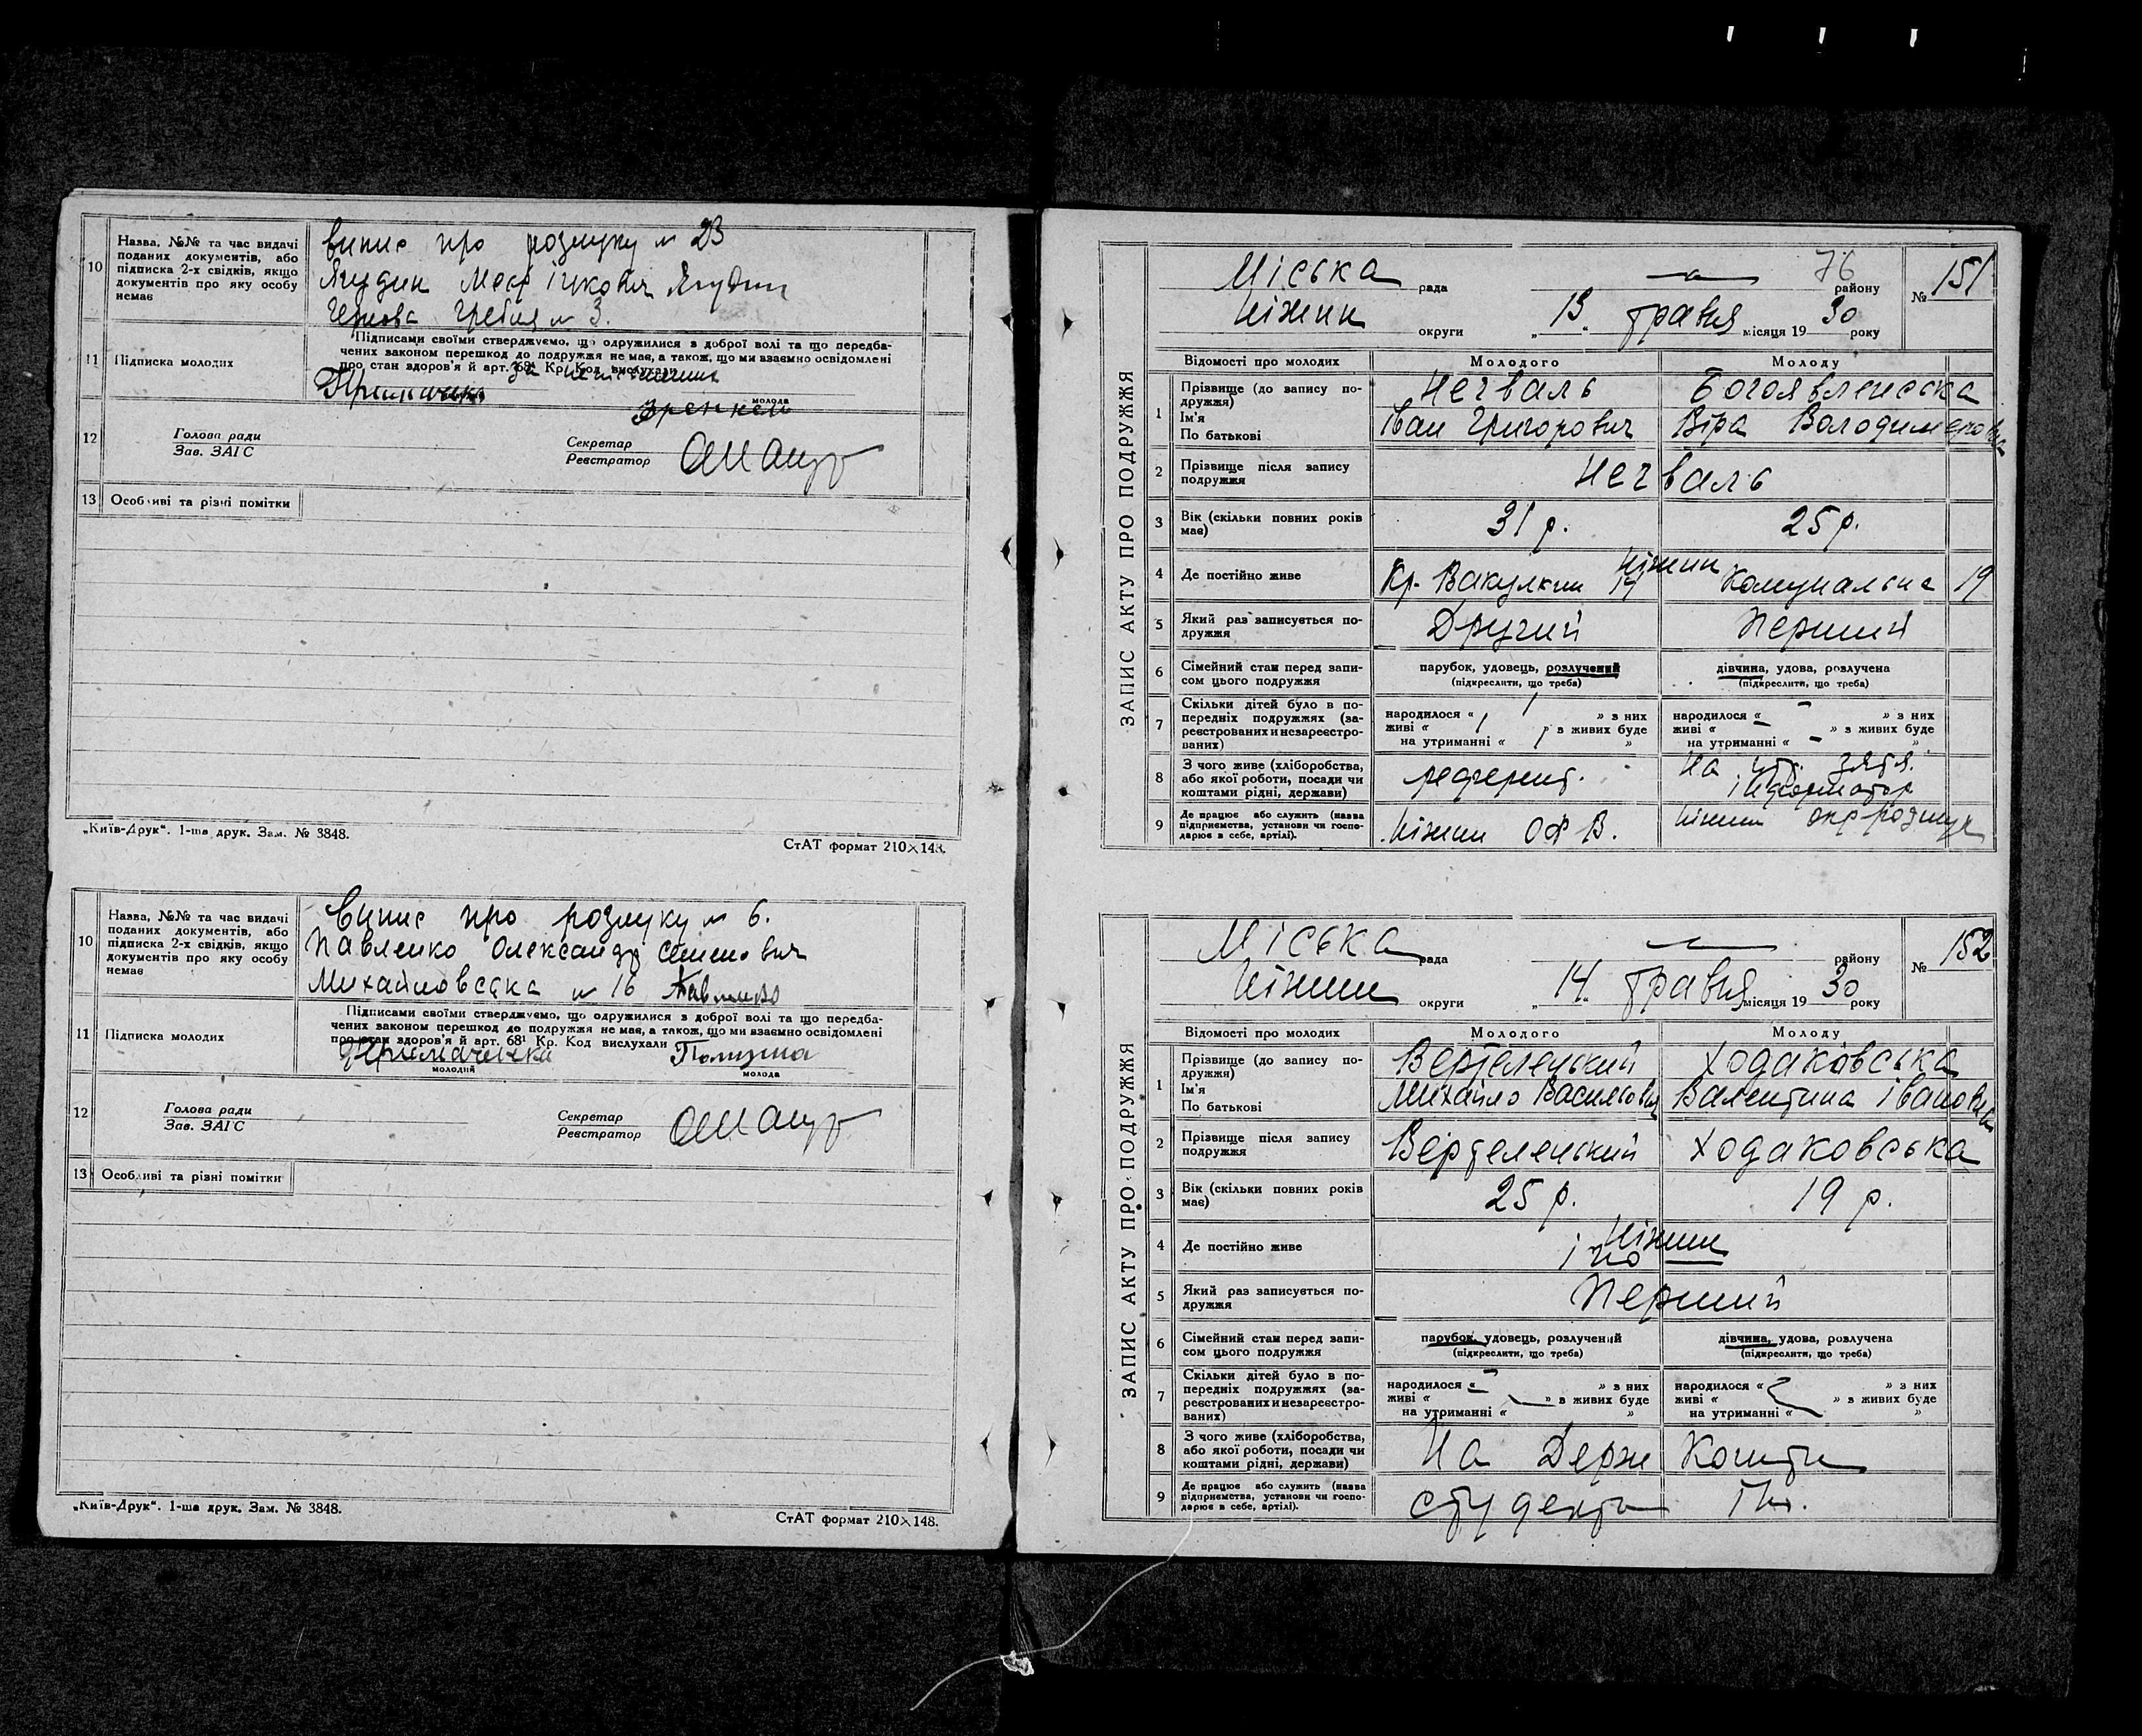 10
Назва, №№ та час видачі
поданих документів, або
підписка 2-х свідків, якщо
документів про яку особу
немає
випис про розлуку № 23
Ягудин
№ 3.
11
Підписка молодих
Підписами своїми стверджуємо, що одружилися з доброї волі та що передба-
чених законом перешкод до подружжя не має, а також, що ми взаємно освідомлені
про стан здоров'я й арт. 68¹ Кр. Код. вислухали
молода
12
Голова ради
Зав. ЗАГС
Секретар
Реєстратор
13
Особливі та різні помітки
„Київ-Друк“. 1-ша друк. Зам. № 3848.
СтАТ формат 210×148.
10
Назва, №№ та час видачі
поданих документів, або
підписка 2-х свідків, якщо
документів про яку особу
немає
Випис про розлуку № 6.
Павленко Олександр Семенович
Михайловська № 16
11
Підписка молодих
Підписами своїми стверджуємо, що одружилися з доброї волі та що передба-
чених законом перешкод до подружжя не має, а також, що ми взаємно освідомлені
про стан здоров'я й арт. 68¹ Кр. Код вислухали
молодий
молода
12
Голова ради
Зав. ЗАГС
Секретар
Реєстратор
13
Особливі та різні помітки
„Київ-Друк“. 1-ша друк. Зам. № 3848.
СтАТ формат 210×148.
ЗАПИС АКТУ ПРО ПОДРУЖЖЯ
76
Міська рада — району
№ 151
Ніжин округи „13“ травня місяця 1930 року
Відомості про молодих
Молодого
Молоду
1
Прізвище (до запису по-
дружжя)
Ім'я
По батькові
Нечваль
Іван Григорович
Богоявленська
Віра Володимеровна
2
Прізвище після запису
подружжя
Нечваль
3
Вік (скільки повних років
має)
31 р.
25 р.
4
Де постійно живе
Ніжин
Кр. Вакулкин 17
Комунальна 19
5
Який раз записується по-
дружжя
Другий
Перший
6
Сімейний стан перед запи-
сом цього подружжя
парубок, удовець, розлучений
(підкреслити, що треба)
дівчина, удова, розлучена
(підкреслити, що треба)
7
Скільки дітей було в по-
передніх подружжях (за-
реєстрованих и незареєстро-
ваних)
народилося « 1 » з них
живі « 1 » в живих буде
на утриманні « 1 »
народилося « – » з них
живі « – » в живих буде
на утриманні « – »
8
З чого живе (хліборобства,
або якої роботи, посади чи
коштами рідні, держави)
референт.
На
інформатор
9
Де працює або служить (назва
підприємства, установи чи госпо-
дарює в себе, артілі).
Ніжин ОФВ.
Ніжин
ЗАПИС АКТУ ПРО ПОДРУЖЖЯ
Міська рада — району
№ 152
Ніжин округи „14“ травня місяця 1930 року
Відомості про молодих
Молодого
Молоду
1
Прізвище (до запису по-
дружжя)
Ім'я
По батькові
Вертелецький
Михайло Васильович
Ходаковська
Валентина Івановна
2
Прізвище після запису
подружжя
Вертелецький
Ходаковська
3
Вік (скільки повних років
має)
25 р.
19 р.
4
Де постійно живе
Ніжин
ІНО
5
Який раз записується по-
дружжя
Перший
6
Сімейний стан перед запи-
сом цього подружжя
парубок, удовець, розлучений
(підкреслити, що треба)
дівчина, удова, розлучена
(підкреслити, що треба)
7
Скільки дітей було в по-
передніх подружжях (за-
реєстрованих и незареєстро-
ваних)
народилося « – » з них
живі « » в живих буде
на утриманні « »
народилося « » з них
живі « » в живих буде
на утриманні « »
8
З чого живе (хліборобства,
або якої роботи, посади чи
коштами рідні, держави)
На Держ Кошти
9
Де працює або служить (назва
підприємства, установи чи госпо-
дарює в себе, артілі).
студенти